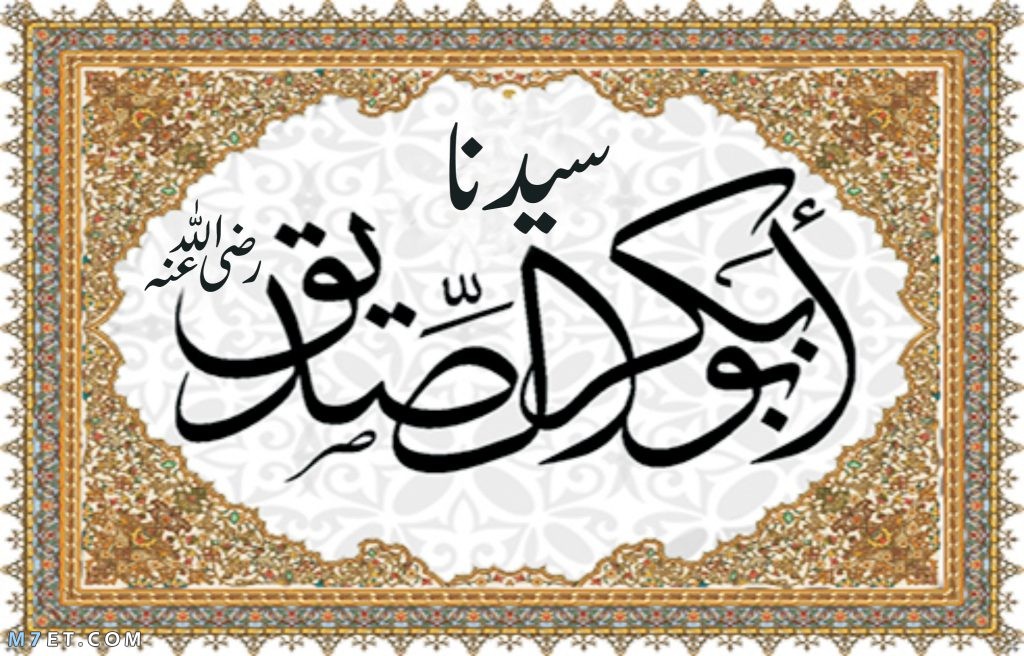 سيدنا
أبو بكر الصّديق
رضی الله عنه
M7ET.COM